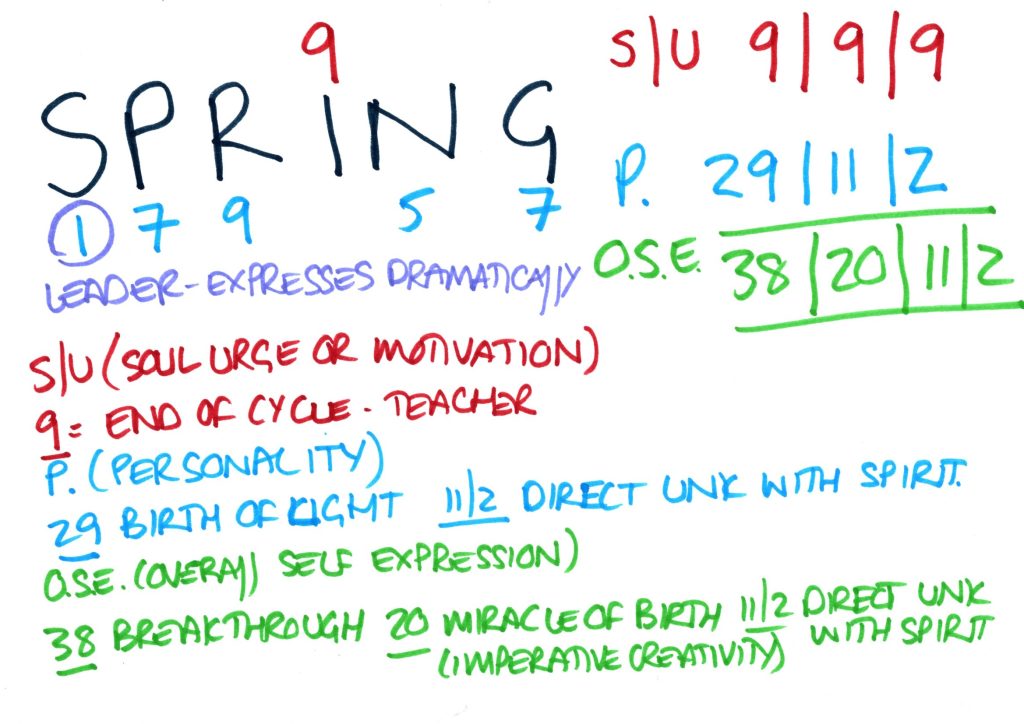 9
S/U 9|9|9
SPRING
P. 29|11|2
1 7 9 5 7
O.S.E. 38|20|11|2
LEADER-EXPRESSES DRAMATICALLY
S/U (SOUL URGE OR MOTIVATION)
9= END OF CYCLE. TEACHER
P. (PERSONALITY)
29 BIRTH OF LIGHT 11/2 DIRECT LINK WITH SPIRIT.
O.S.E. (OVERALL SELF EXPRESSION)
38 BREAKTHROUGH 20 MIRACLE OF BIRTH 11/2 DIRECT LINK
(IMPERATIVE CREATIVITY) WITH SPIRIT